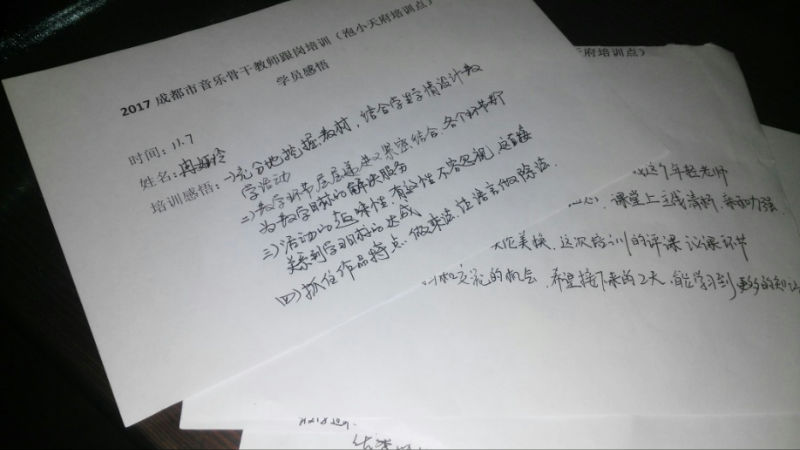 2017 成都市音乐骨干教师跟岗培训（泡小天府培训点）
学员感悟
时间：11.7
姓名：冉
培训感悟：一)充分地挖掘教材，结合学生学情设计教
学活动
二)教学环节层层递进又紧密结合，各个环节都
为教学目标的解决服务
三)活动的趣味性、有效性不容忽视，这直接
关系到学习目标的达成
四)抓住作品特点，做乘法，让语言做除法。
府培训点）
这个年轻老师
心，课堂上主线清晰，亲和力强
这次培训的评课议课环节
交流的机会，希望接下来的2天，能学习到更多的知识